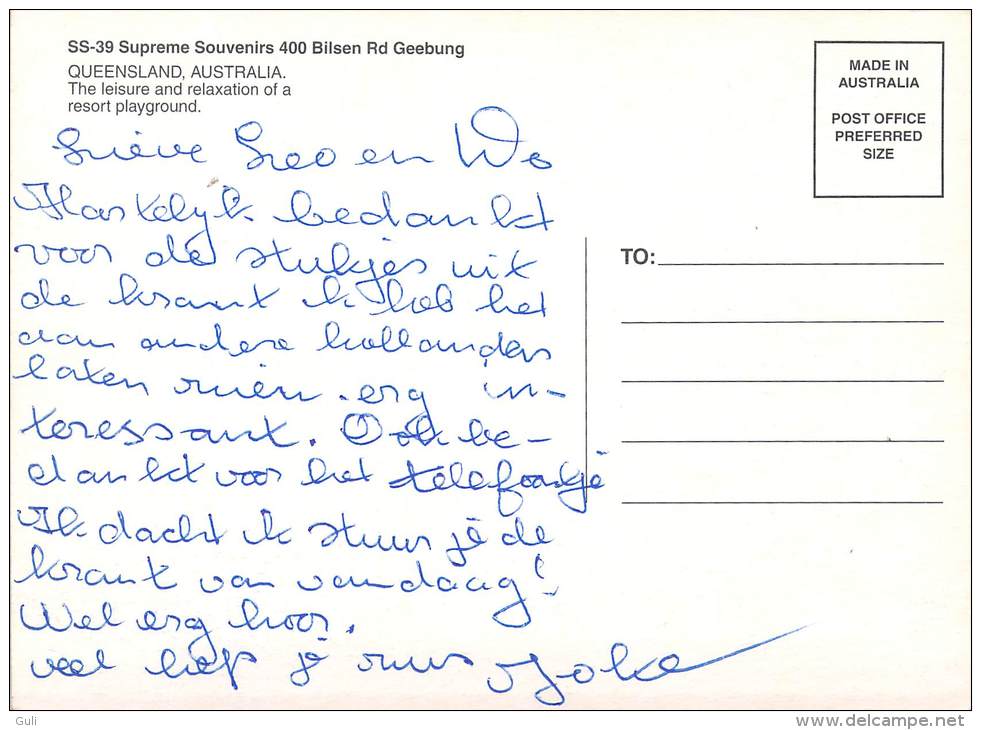 SS-39 Supreme Souvenirs 400 Bilsen Rd Geebung
QUEENSLAND, AUSTRALIA.
The leisure and relaxation of a
resort playground.
MADE IN
AUSTRALIA
POST OFFICE
PREFERRED
SIZE
Lieve Leo en Wo
Hartelijk bedankt
voor de stukjes uit
de krant ik heb het
aan andere hollanders
laten zien. erg in-
teressant. Ook be-
dankt voor het telefoontje
Ik dacht ik stuur je de
krant van vandaag!
Wel erg hoor.
veel liefs je zus Joke
TO:
Guli
www.delcampe.net